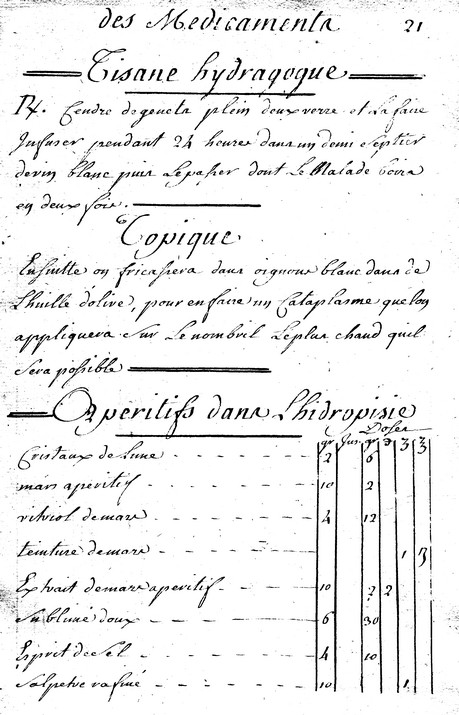 des Medicaments 21
Tisane hydragogue
℞. Cendre de genets plein deux verre et La faire
Infuser pendant 24 heures dans un demi Septier
de vin blanc puis Le passer dont Le Malade boira
en deux fois.
Topique
Ensuitte on fricassera dans oignons blanc dans de
Lhuille d'olive, pour en faire un Cataplasme que lon
appliquera Sur Le nombril Le plus chaud quil
Sera possible
Aperitifs dans Lhidropisie
Doses
gr Jus. gr ℈ ʒ ℥
Cristaux de Lune 2 6
mars aperitif 10 2
vitriol de mars 4 12
teinture de mars 1 3
Extrait de mars aperitif 10 2 2
Sublimé doux 6 30
Esprit de Sel 4 10
Salpetre rafiné 10 1